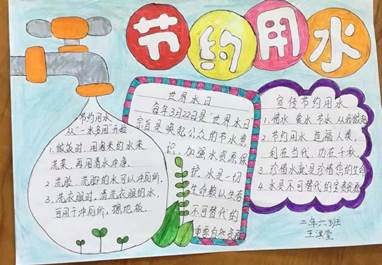 节约用水
节约用水
从一水多用开始
1.做饭时,用淘米的水来
洗菜,再用清水冲净。
2.洗脸、洗脚的水可以冲厕所。
3.洗衣服时,清洗衣服的水,
可用于冲厕所,擦地板。
世界水日
每年3月22日是"世界水日"
宗旨是唤起公众的节水意
识,加强水资源保
护。水是一切
生命赖以生存
不可替代的
重要自然资源
宣传节约用水
1.惜水、爱水、节水,从我做起
2.节约用水、造福人类,
利在当代,功在千秋。
3.珍惜水就是珍惜您的生命
4.水是不可替代的宝贵资源
二年六班